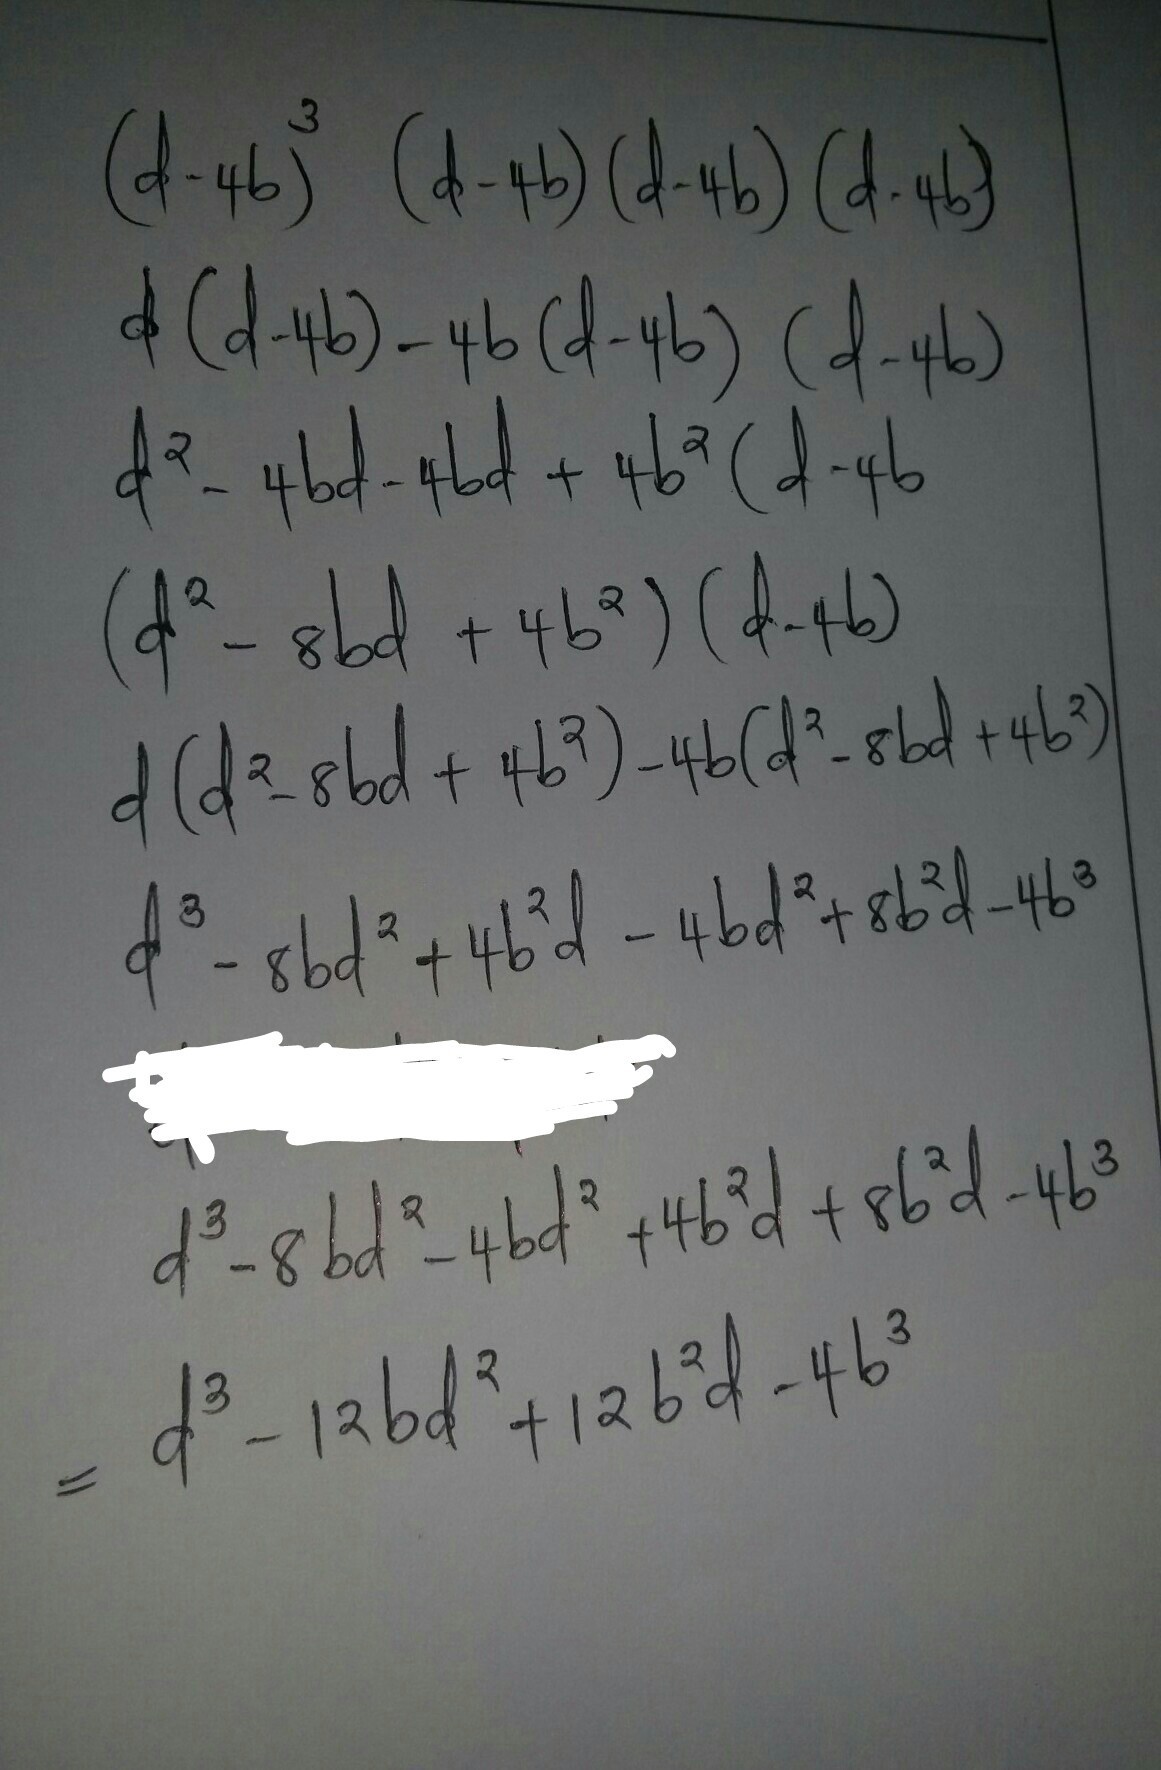 (d-4b)³ (d-4b)(d-4b)(d-4b)
d(d-4b)-4b(d-4b)(d-4b)
d²-4bd-4bd+4b²(d-4b
(d²-8bd+4b²)(d-4b)
d(d²-8bd+4b²)-4b(d²-8bd+4b²)
d³-8bd²+4b²d-4bd²+8b²d-4b³
d³-8bd²-4bd²+4b²d+8b²d-4b³
= d³-12bd²+12b²d-4b³